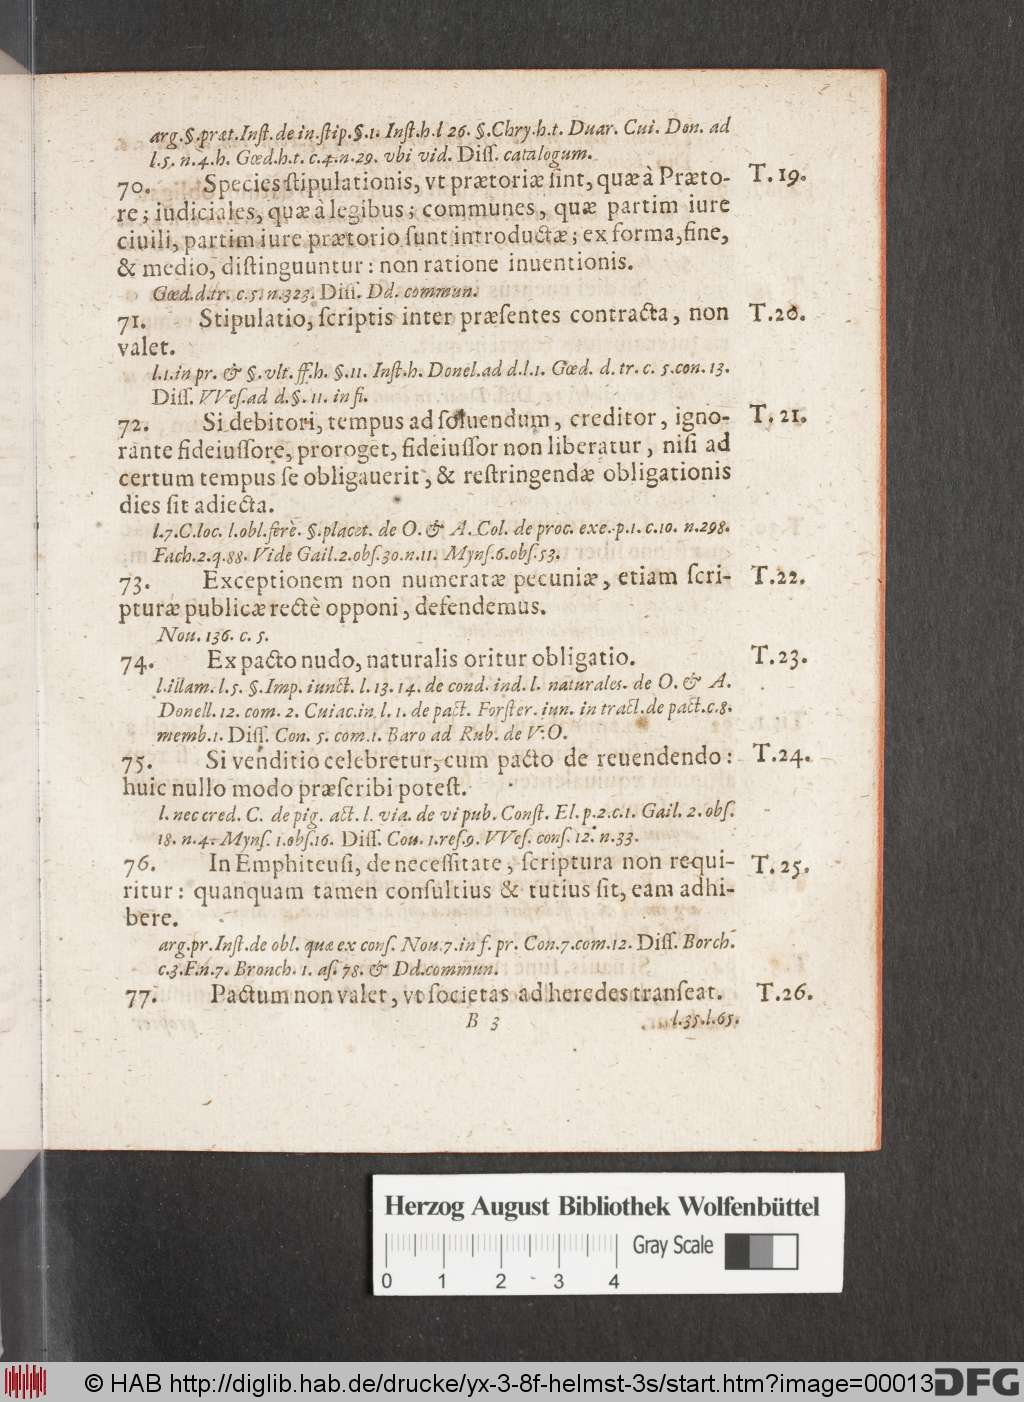 arg.§.præt.Inſt.de in.ſtip.§.1. Inſt.h.l 26. §.Chry.h.t. Duar. Cui. Don. ad
l.5. n.4.h. Gœd.h.t. c.4.n.29. vbi vid. Diſſ. catalogum.
70. Species ſtipulationis, vt prætoriæ ſint, quæ à Præto- T.19.
re; iudiciales, quæ à legibus; communes, quæ partim iure
ciuili, partim iure prætorio ſunt introductæ; ex forma, fine,
& medio, diſtinguuntur: non ratione inuentionis.
Gœd.d.tr. c.5.n.323. Diſſ. Dd. commun.
71. Stipulatio, ſcriptis inter præſentes contracta, non T.20.
valet.
l.1.in pr. & §.vlt. ff.h. §.11. Inſt.h. Donel.ad d.l.1. Gœd. d. tr. c. 5.con. 13.
Diſſ. VVeſ.ad d.§. 11. in fi.
72. Si debitori, tempus ad ſoluendum, creditor, igno- T. 21.
rante fideiuſſore, proroget, fideiuſſor non liberatur, niſi ad
certum tempus ſe obligauerit, & reſtringendæ obligationis
dies ſit adiecta.
l.7.C.loc. l.obl.ferè. §.placet. de O. & A. Col. de proc. exe. p.1. c.10. n.298.
Fach.2.q.88. Vide Gail.2.obſ.30.n.11. Mynſ.6.obſ.53.
73. Exceptionem non numeratæ pecuniæ, etiam ſcri- T.22.
pturæ publicæ rectè opponi, defendemus.
Nou. 136. c. 5.
74. Ex pacto nudo, naturalis oritur obligatio. T.23.
l.illam. l.5. §.Imp. iunct. l. 13. 14. de cond. ind. l. naturales. de O. & A.
Donell. 12. com. 2. Cuiac.in l. 1. de pact. Forſter. iun. in tract.de pact.c.8.
memb.1. Diſſ. Con. 5. com.1. Baro ad Rub. de V.O.
75. Si venditio celebretur, cum pacto de reuendendo: T.24.
huic nullo modo præſcribi poteſt.
l. nec cred. C. de pig. act. l. via. de vi pub. Conſt. El. p.2.c.1. Gail. 2. obſ.
18. n.4. Mynſ. 1.obſ.16. Diſſ. Cou. 1.reſ.9. VVeſ. conſ. 12. n.33.
76. In Emphiteuſi, de neceſſitate, ſcriptura non requi- T.25.
ritur: quanquam tamen conſultius & tutius ſit, eam adhi-
bere.
arg.pr.Inſt.de obl. quæ ex conſ. Nou.7.in f. pr. Con.7.com.12. Diſſ. Borch.
c.3.F.n.7. Bronch. 1. aſ. 78. & Dd.commun.
77. Pactum non valet, vt ſocietas ad heredes tranſeat. T.26.
B 3 l.35.l.65.
Herzog August Bibliothek Wolfenbüttel
Gray Scale
0 1 2 3 4
© HAB http://diglib.hab.de/drucke/yx-3-8f-helmst-3s/start.htm?image=00013
DFG